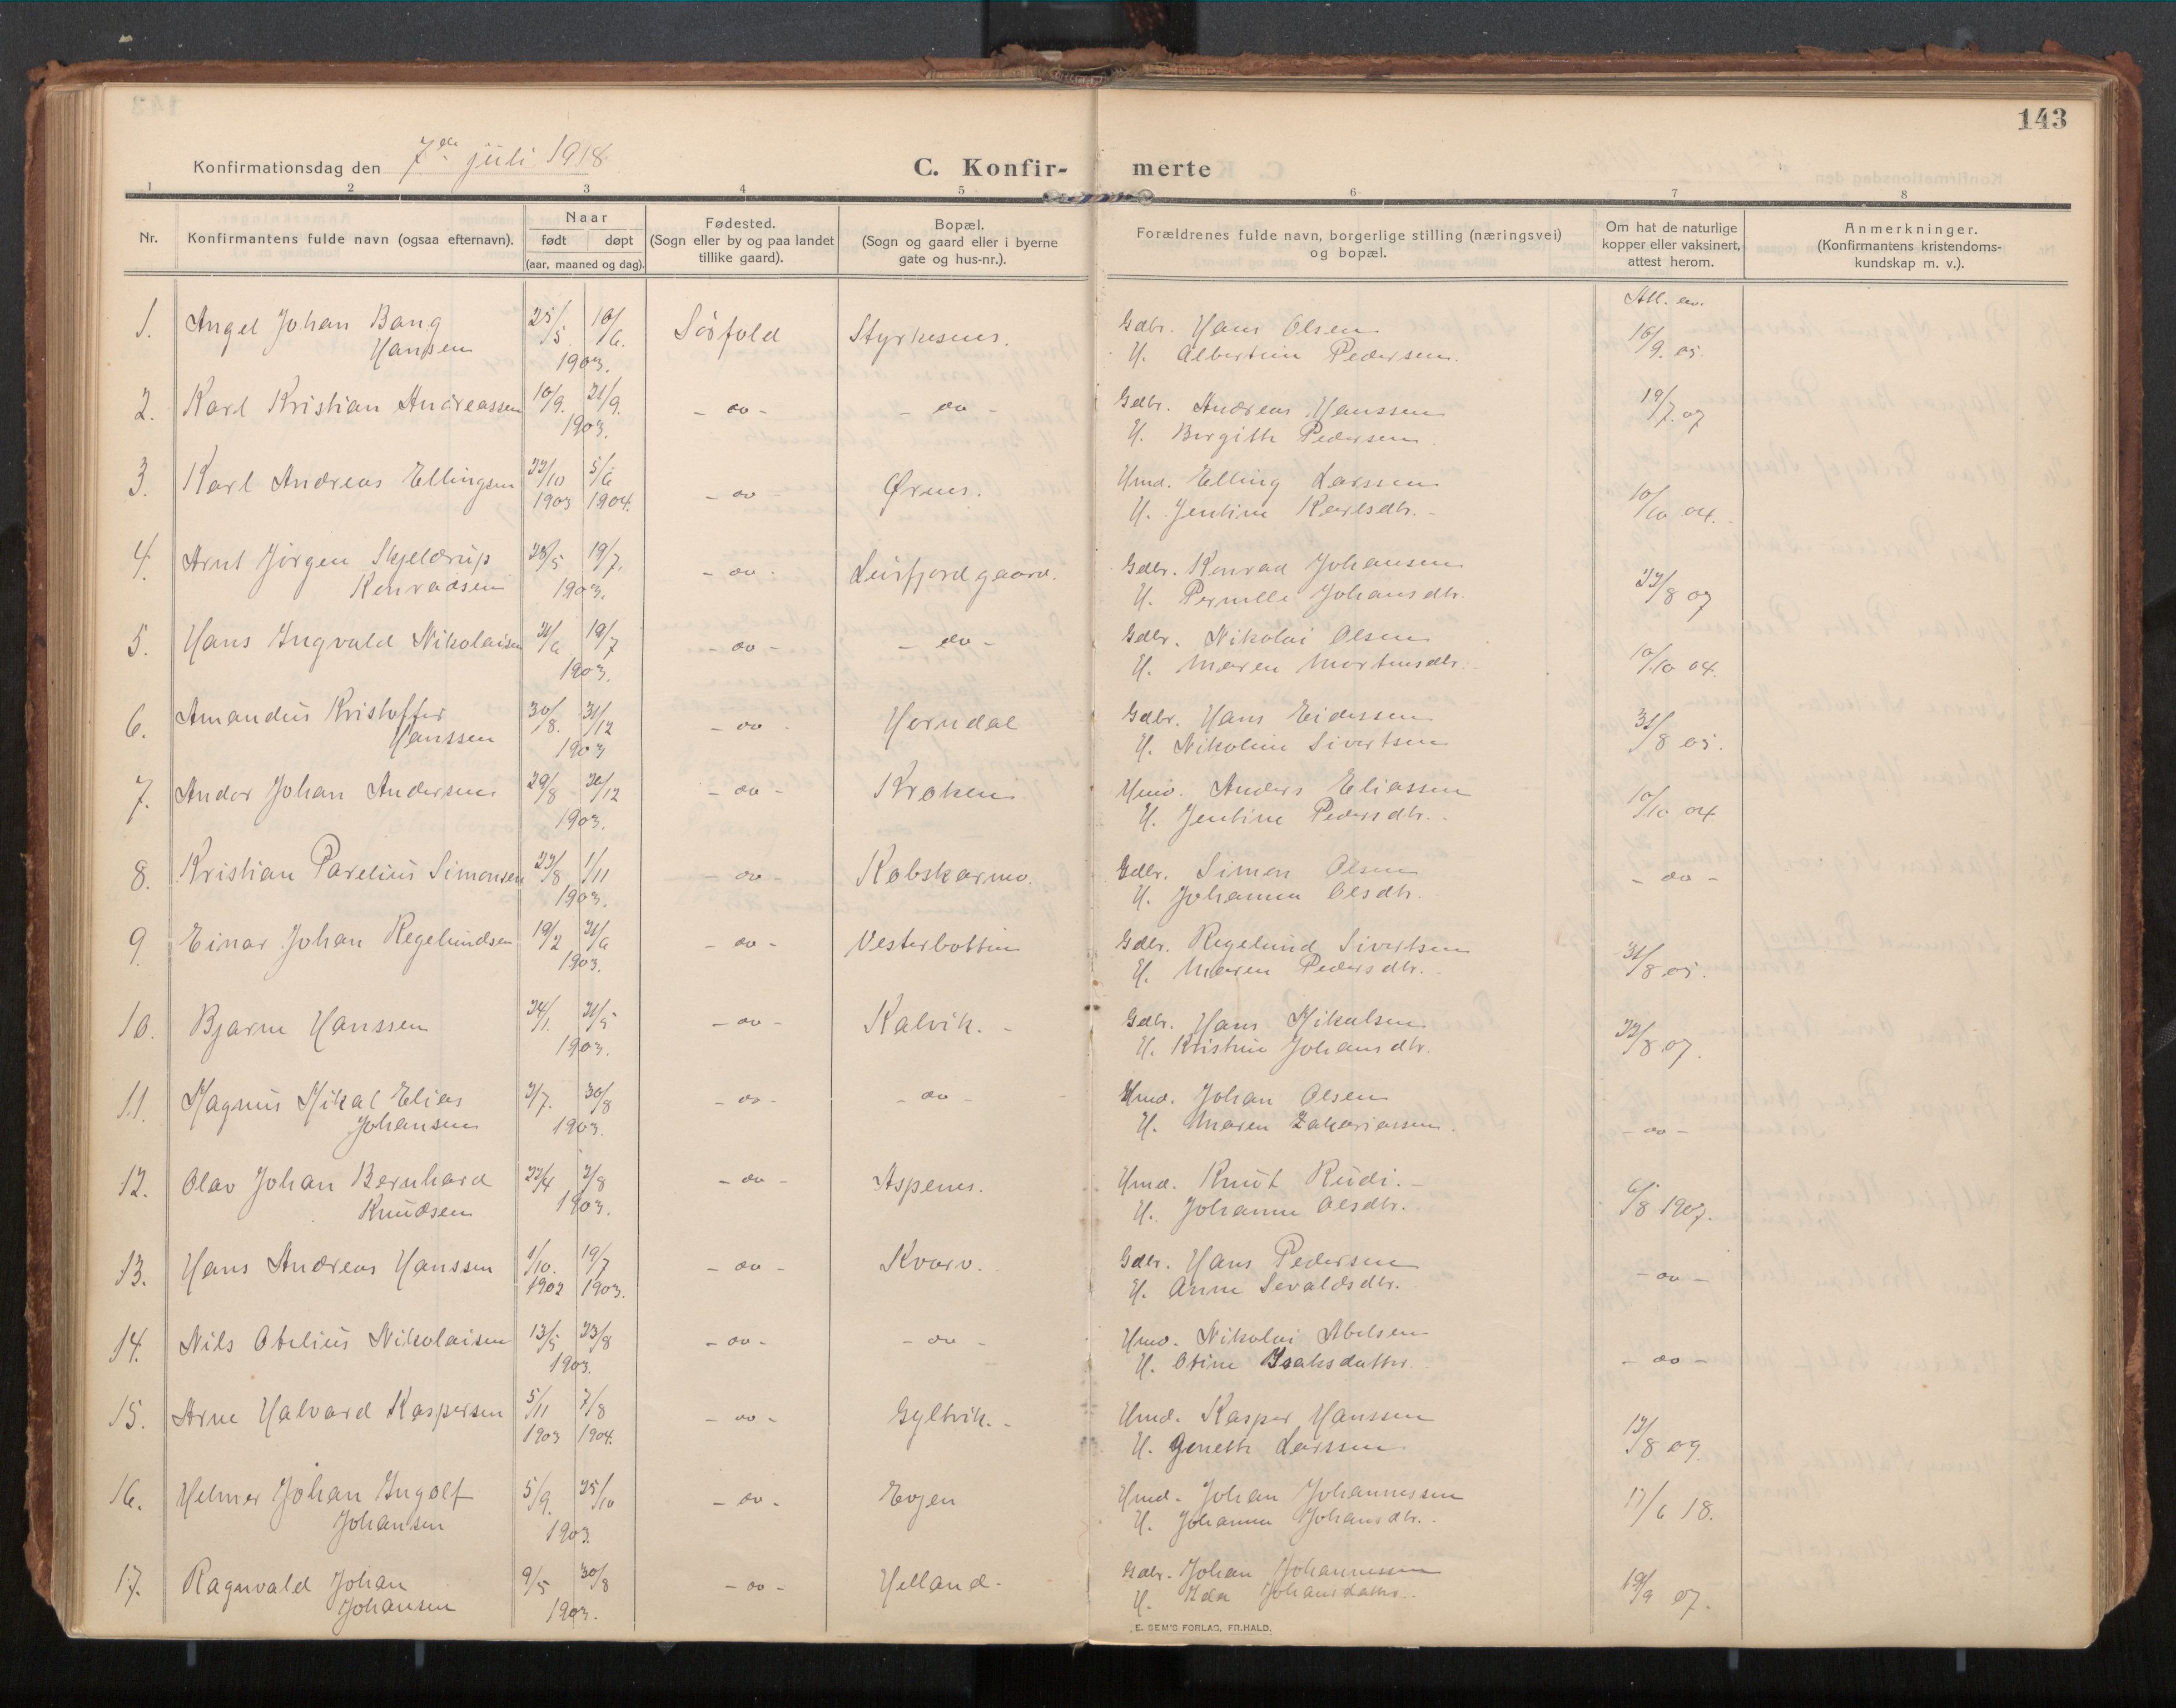 143
Konfirmationsdag den 7de juli 1918
C. Konfir- merte
1 2 3 4 5 6 7 8
Nr.
Konfirmantens fulde navn (ogsaa efternavn).
Naar
født døpt
(aar, maaned og dag).
Fødested.
(Sogn eller by og paa landet
tillike gaard).
Bopæl.
(Sogn og gaard eller i byerne
gate og hus-nr.).
Forældrenes fulde navn, borgerlige stilling (næringsvei)
og bopæl.
Om hat de naturlige
kopper eller vaksinert,
attest herom.
Anmerkninger.
(Konfirmantens kristendoms-
kundskap m. v.).
Att. av.
1. Angel Johan Bang 25/5. 16/6. Sørfold Styrkesnes. Gdbr. Hans Olsen 16/9. 05.
Hansen 1903. H. Albertine Pedersen.
2. Karl Kristian Andreassen 10/9. 21/9. - do - - do - Gdbr. Andreas Hanssen 19/7. 07
1903. H. Bergith Pedersen.
3. Karl Andreas Ellingsen 22/10 5/6 - do - Ørnes. Hmd. Elling Larssen
1903 1904. H. Jentine Karlsdtr. - 10/10 04.
4. Arnt Jørgen Skjeldrup 28/5 19/7. - do - Leirfjordgaard. Gdbr. Konrad Johansen
Konradsen 1903. H. Pernille Johansdtr. 22/8 07
5. Hans Ingvald Nikolaisen 21/6 19/7 - do - - do - Gdbr. Nikolai Olsen
1903. H. Maren Mortensdtr. - 10/10 04.
6. Amandus Kristoffer 30/8. 31/12 - do - Horndal Gdbr. Hans Eidissen
Hanssen 1903 H. Nikoline Sivertsen 31/8 05.
7. Andor Johan Andersen 29/8 26/12 - do - Kroken Hmd. Anders Eliassen
1903. H. Jentine Pedersdtr. - 10/10 04
8. Kristian Parelius Simonsen 23/8 1/11 - do - Kobskarmo. Gdbr. Simon Olsen - do -
1903. H. Johanna Olsdtr.
9. Einar Johan Regelundsen 19/2 21/6 - do - Vesterbotten Gdbr. Regelund Sivertsen
1903. H. Maren Pedersdtr. - 31/8 05.
10. Bjarne Hanssen 24/1. 31/5 - do - Kalvik. - Gdbr. Hans Mikalsen
1903. H. Kristine Johansdtr. 22/8 07.
11. Magnus Mikal Elias 3/7. 30/8 - do - - do - Hmd. Johan Olsen
Johansen 1903. H. Maren Zakariassen. - do -
12. Olav Johan Bernhard 22/4 2/8 - do - Aspenes. Hmd. Knut Rudi. -
Knudsen 1903. H. Johanne Olsdtr. 6/8 1907.
13. Hans Andreas Hanssen 1/10. 19/7 - do - Kvarv. Gdbr. Hans Pedersen
1902 1903. H. Anne Sevaldsdtr. - do -
14. Nils Otelius Nikolaisen 13/5 23/8 - do - - do - Hmd. Nikolai Abelsen
1903. H. Otine Isaksdatter. - do -
15. Arne Halvard Kaspersen 5/11 7/8 - do - Gyltvik. - Hmd. Kasper Hanssen
1903 1904. H. Jeneth Larssen 12/8 09.
16. Helmer Johan Ingolf 5/9. 25/10 - do - Evjen Hmd. Johan Johannessen
Johansen 1903. H. Johanna Johansdtr. - 17/6 18.
17. Ragnvald Johan 9/5 30/8 - do - Helland. - Gdbr. Johan Johannessen
Johansen 1903. H. Ida Johansdatter. 19/9 07.
E. SEM'S FORLAG, FR.HALD.